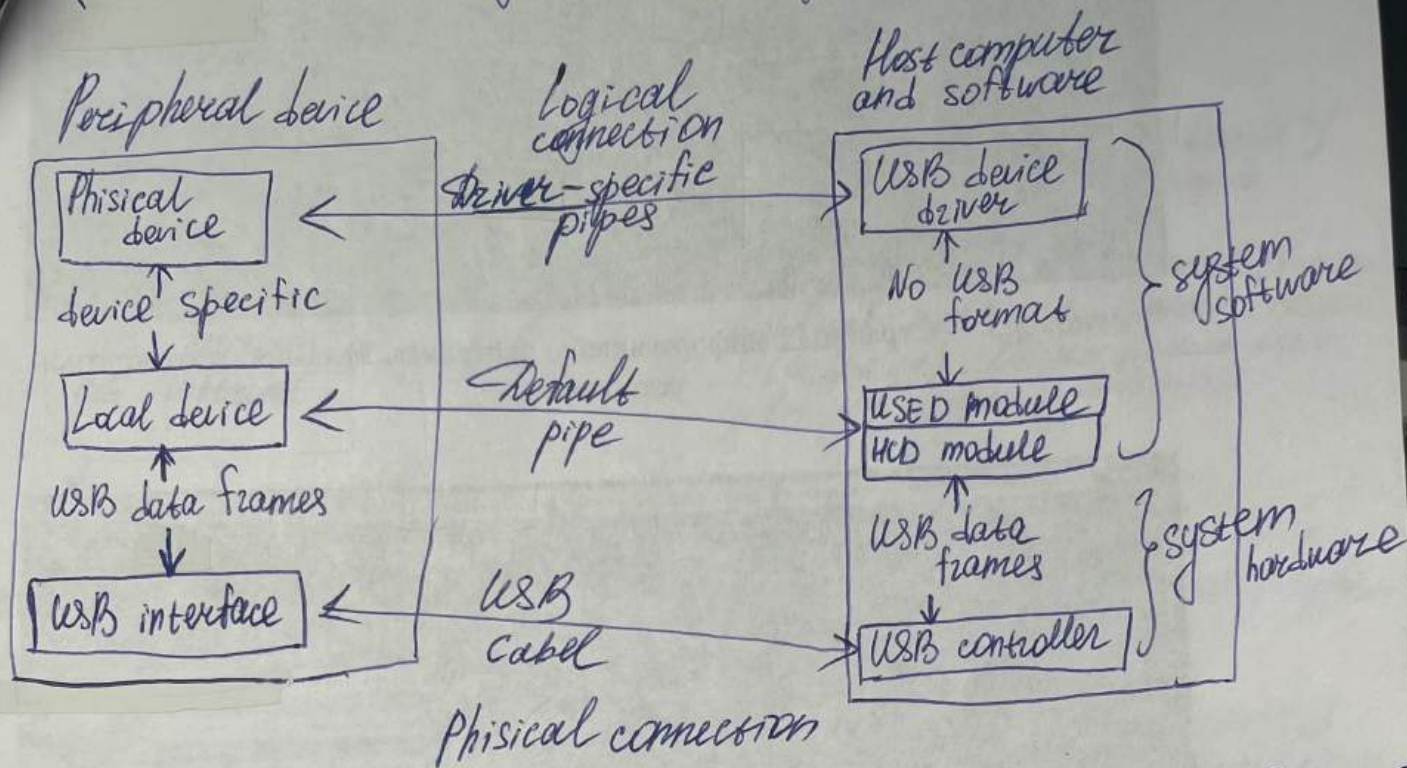 Peripheral device
Phisical
device
device specific
Local device
USB data frames
USB interface
Logical
connection
Driver-specific
pipes
Default
pipe
USB
Cabel
Phisical connection
Host computer
and software
USB device
driver
No USB
format
USED module
HCD module
USB data
frames
USB controller
system
software
system
hardware